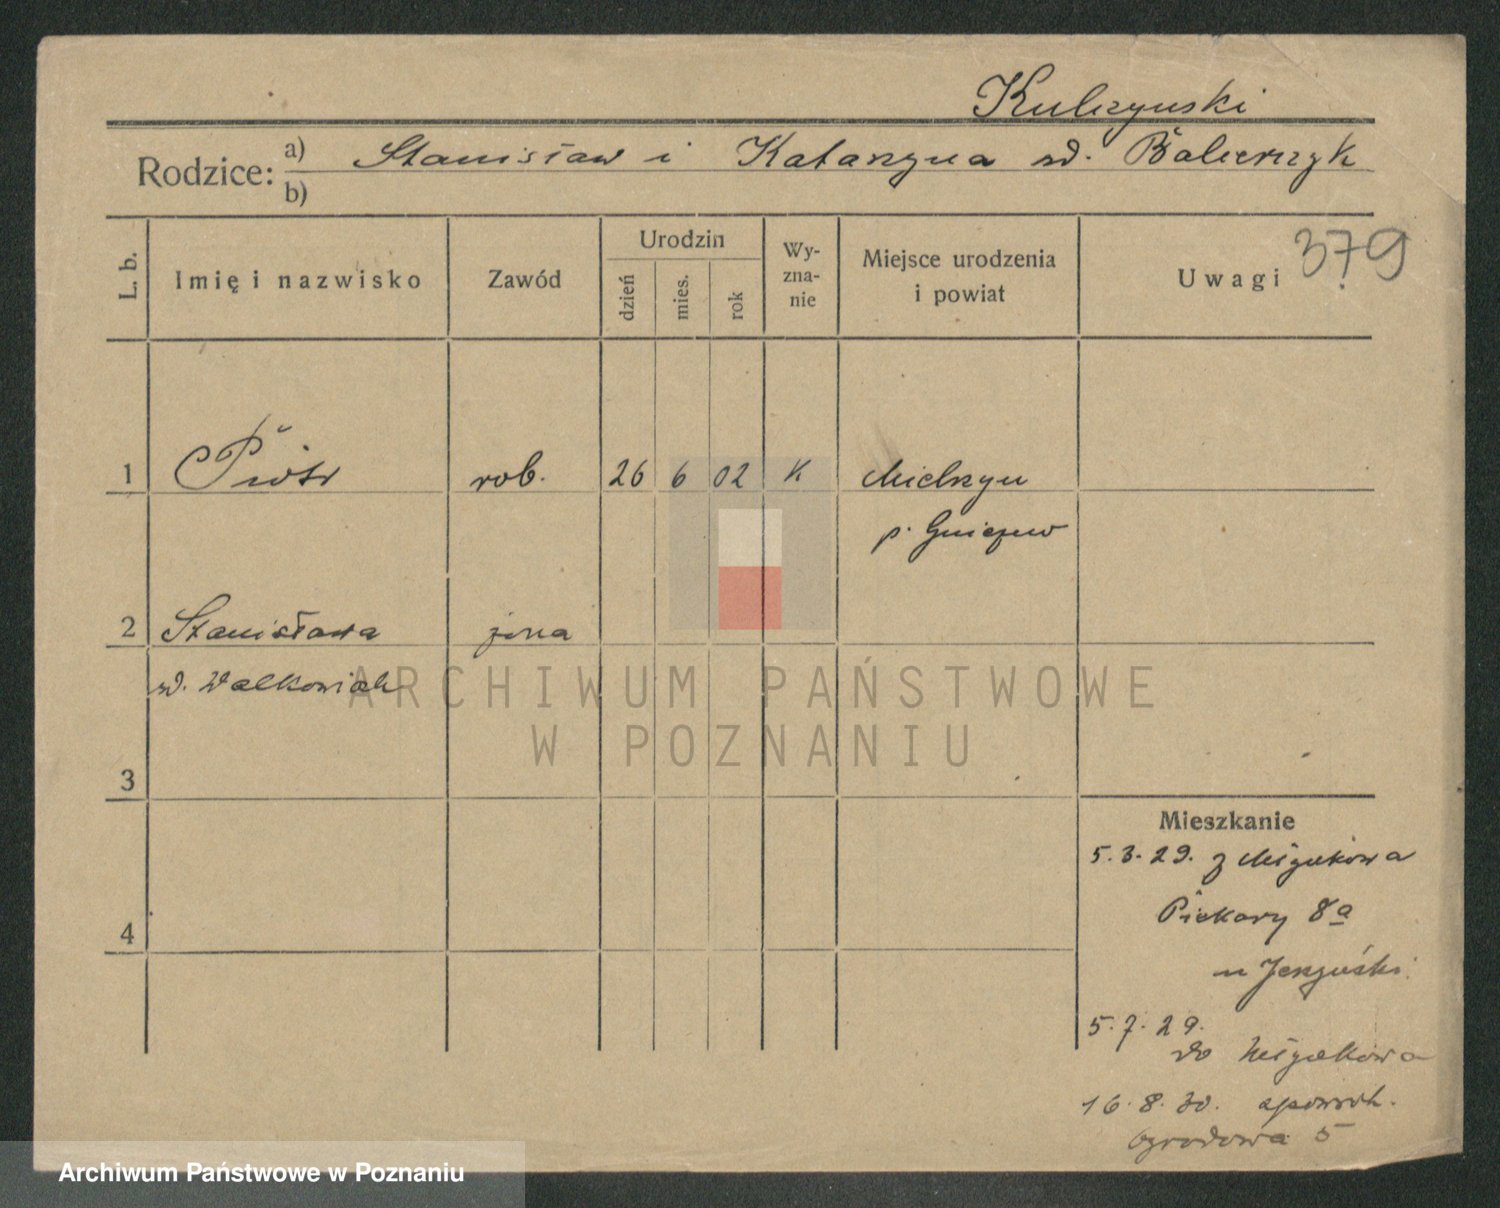 Kulczynski
Rodzice: a) Stanisław i Katarzyna zd. Balcerzyk
b)
379
L. b.
Imię i nazwisko
Zawód
Urodzin
dzień
mies.
rok
Wy-
zna-
nie
Miejsce urodzenia
i powiat
Uwagi
1 Piotr rob. 26 6 02 K Mielżyn
p. Gniezno
2 Stanisława żona
zd. Walkowiak
3
4
Mieszkanie
5.3.29. z
Piekary 8a
u
5.7.29.
do
16.8.30. zpowrot.
Ogrodowa 5
ARCHIWUM PAŃSTWOWE
W POZNANIU
Archiwum Państwowe w Poznaniu